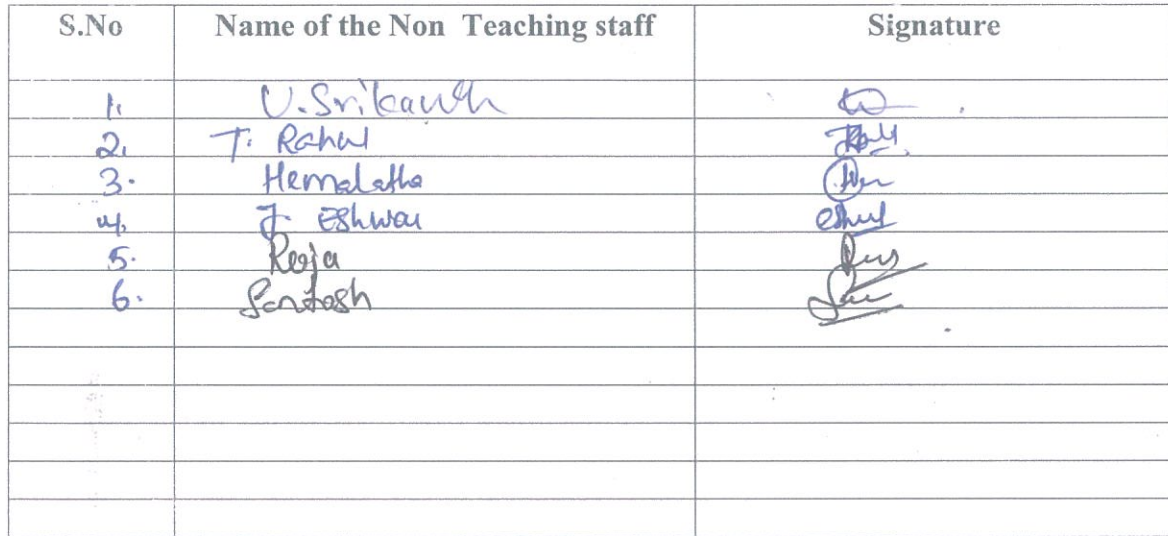 S.No Name of the Non Teaching staff Signature
1. U.Srikanth
2. T. Rahul
3. Hemalatha
4. J. Eshwar
5. Roja
6. Santosh